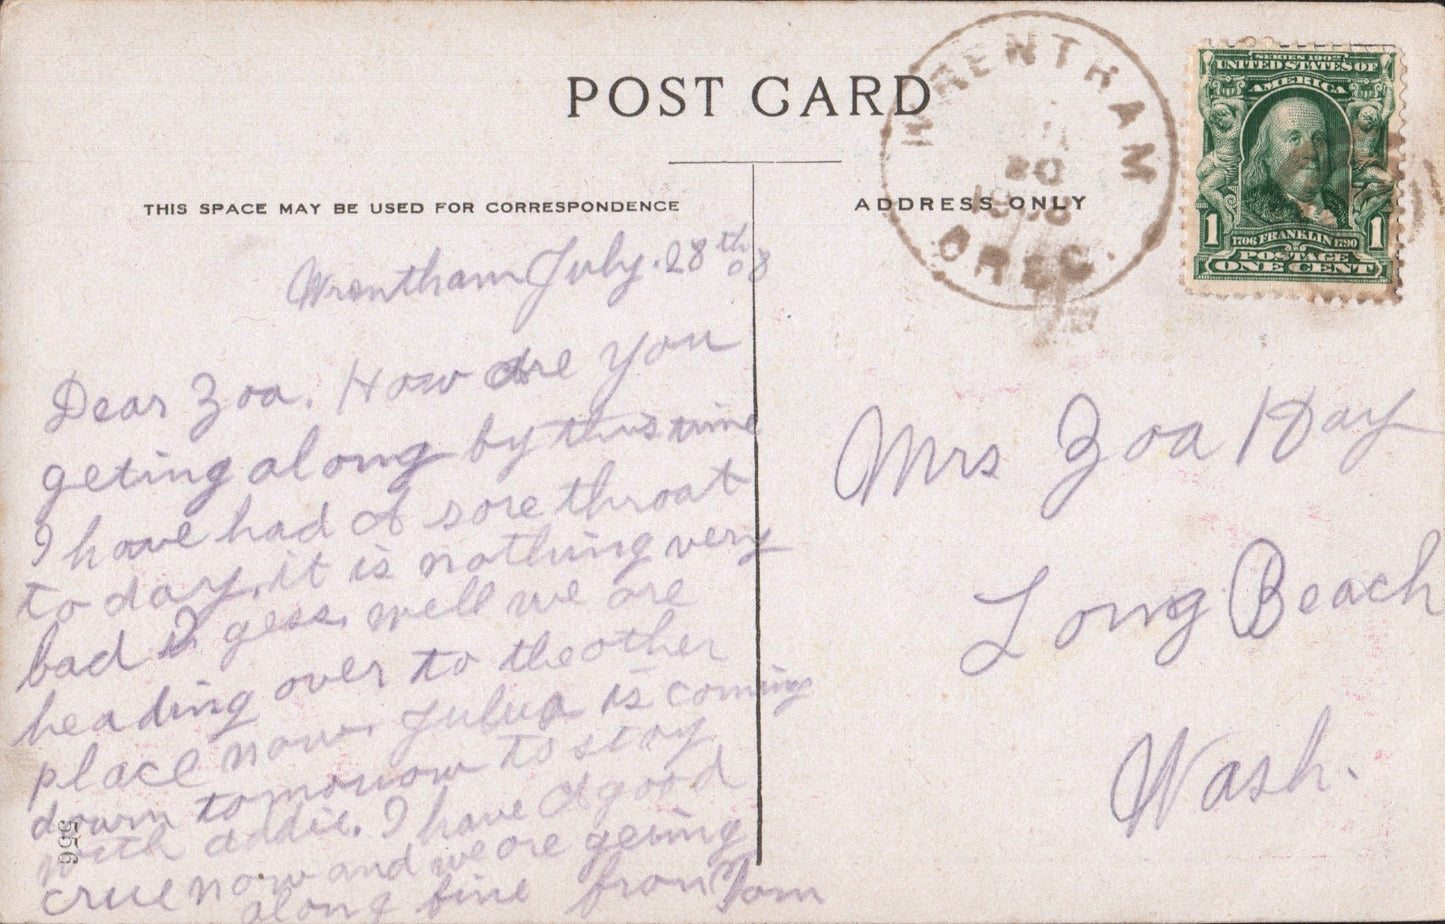 POST CARD
THIS SPACE MAY BE USED FOR CORRESPONDENCE
ADDRESS ONLY
WRENTHAM
30
1908
OREG.
SERIES 1902
UNITED STATES OF
AMERICA
1 1706 FRANKLIN 1790 1
POSTAGE
ONE CENT
Wrentham July. 28th 08
Dear Zoa. How are you
geting along by this time
I have had A sore throat
to day. it is nothing very
bad I gess. well we are
heading over to the other
place now. Julua is coming
down tomorrow to stay
with addie. I have A good
crue now and we are geting
along fine from Tom
556
Mrs Zoa Hay
Long Beach
Wash.